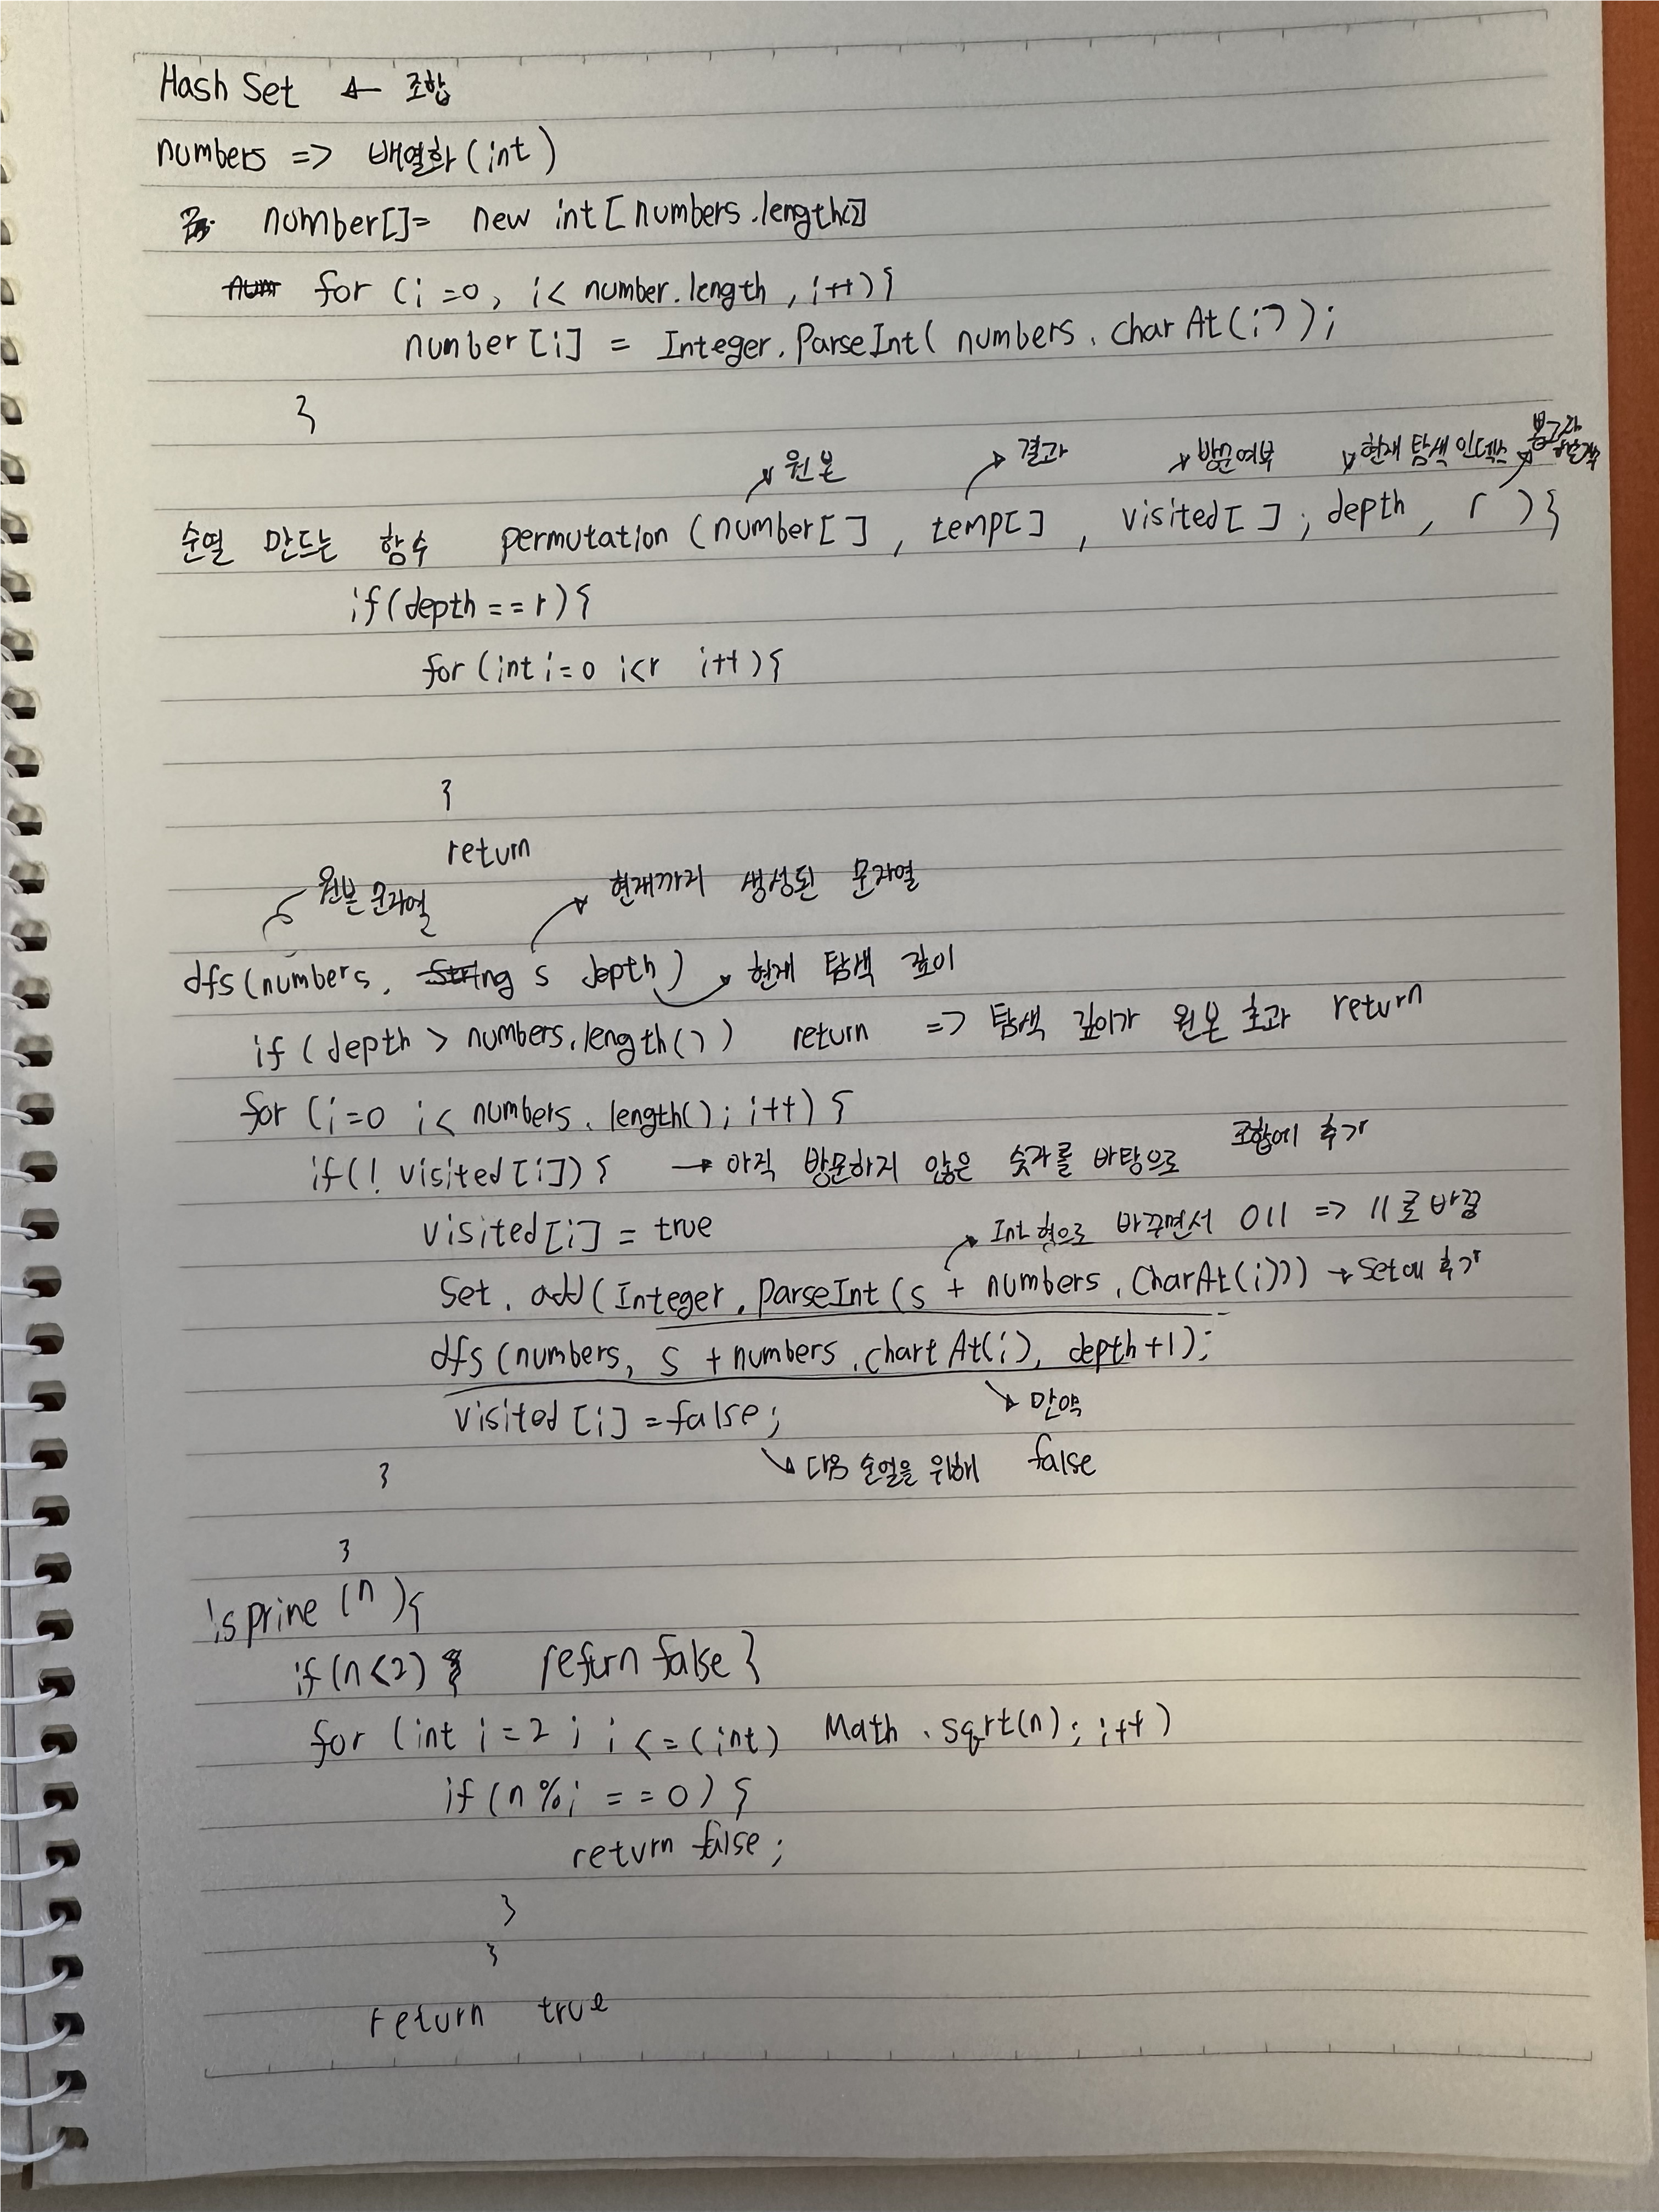 Hash Set ← 조합
numbers => 배열화(int)
number[]= new int[numbers.length()]
for (i=0, i< number.length, i++){
number[i] = Integer.ParseInt( numbers.charAt(i));
}
원본 결과 방문여부 현재 탐색 인덱스
순열 만드는 함수 permutation (number[], temp[], visited[]; depth, r ){
if(depth==r){
for (int i=0 i<r i++){
}
return
원본 문자열 현재까지 생성된 문자열
dfs(numbers, String s depth) → 현재 탐색 깊이
if (depth > numbers.length()) return => 탐색 깊이가 원본 초과 return
for (i=0 i< numbers.length(); i++) {
if(! visited[i]) { → 아직 방문하지 않은 숫자를 바탕으로 조합에 추가
visited[i] = true
Int 형으로 바꾸면서 011 => 11로 바뀜
Set.add(Integer.ParseInt(s + numbers.CharAt(i))) → Set에 추가
dfs (numbers, s + numbers.chartAt(i), depth+1);
visited[i] = false; 만약
다음 순열을 위해 false
}
}
isprine (n){
if(n<2){ return false }
for (int i=2; i<=(int) Math.sqrt(n); i++)
if(n%i == 0) {
return false;
}
}
return true